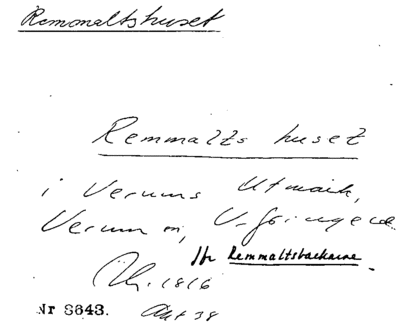 Remonaltshuset
Remmalts huset
i Verums Utmark,
Verum sn, V. Göinge hd
Jfr Remmaltsbackarne.
1816
Nr 8643.